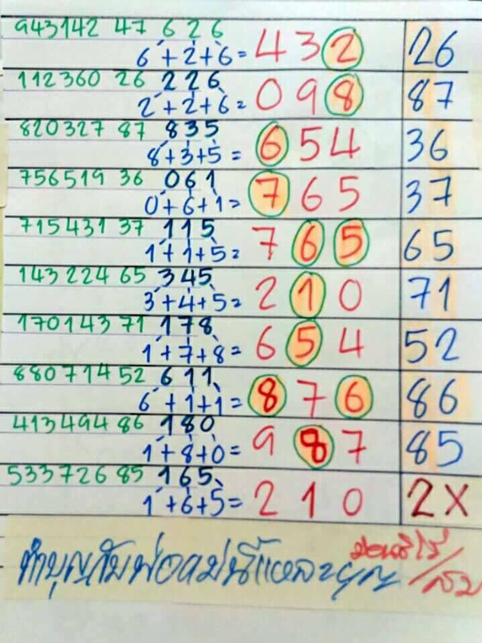 943142 47 626
6+2+6= 432 26
112360 26 226
2+2+6= 098 87
820327 87 835
8+3+5= 654 36
756519 36 061
0+6+1= 765 37
715431 37 115
1+1+5= 765 65
143224 65 345
3+4+5= 210 71
170143 71 178
1+7+8= 654 52
880714 52 611
6+1+1= 876 86
413494 86 180
1+8+0= 987 85
533726 85 165
1+6+5= 210 2X